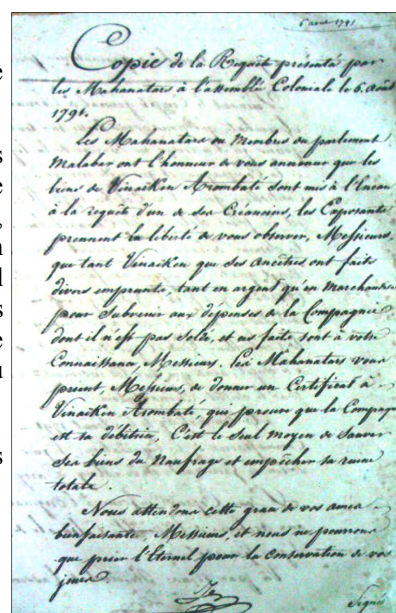 6 août 1791
Copie de la Requête présenté par
les Mahanatars à l'assemblé Coloniale le 6. août
1791.
Les Mahanatars ou Membres du parlement
Malabar ont l'honneur de vous annoncer que les
biens de Vinaiken Arombaté sont mis à l'Encan
à la requête d'un de ses Créanciers, les Exposants
prennent la liberté de vous observer, Messieurs,
que tant Vinaiken que ses ancêtres ont faits
divers emprunts, tant en argent qu'en Marchandises
pour subvenir aux dépenses de la Compagnie
dont il n'est pas soldé, et ces faits sont à votre
Connaissance, Messieurs. Les Mahanatars vous
prient Messieurs, de donner un Certificat à
Vinaiken Arombaté, qui prouve que la Compag
est sa débitrice, C'est le seul moyen de sauver
ses biens du Naufrage et empêcher sa ruine
totale.
Nous attendons cette grace de vos ames
bienfaisantes, Messieurs, et nous ne pourrons
que prier l'Eternel pour la conservation de vos
jours.
Signés